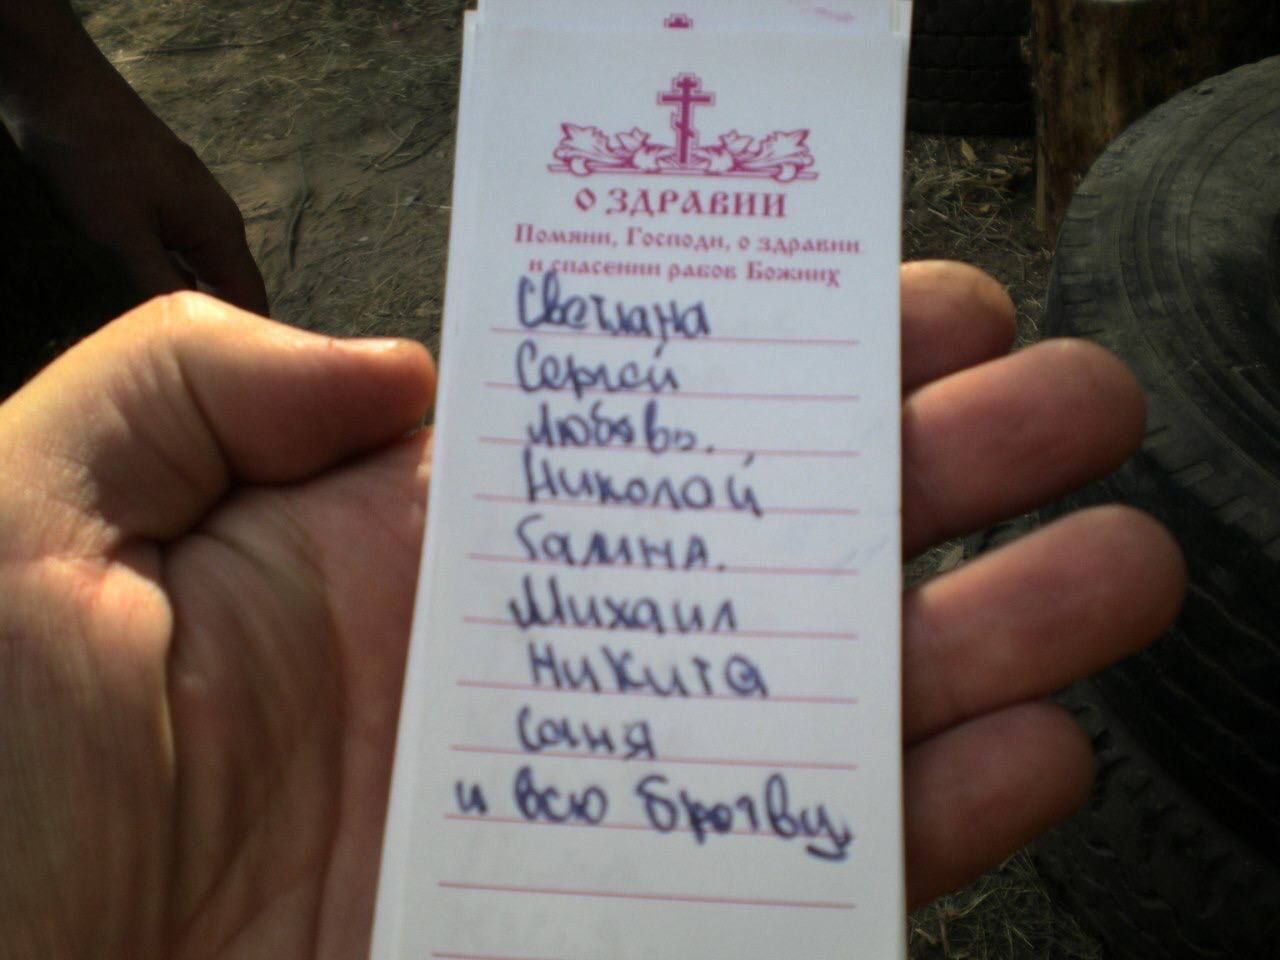 О ЗДРАВИИ
Помяни, Господи, о здравии
и спасении рабов Божиих
Светлана
Сергей
Любовь.
Николай
Галина.
Михаил
Никита
Саня
и всю братву